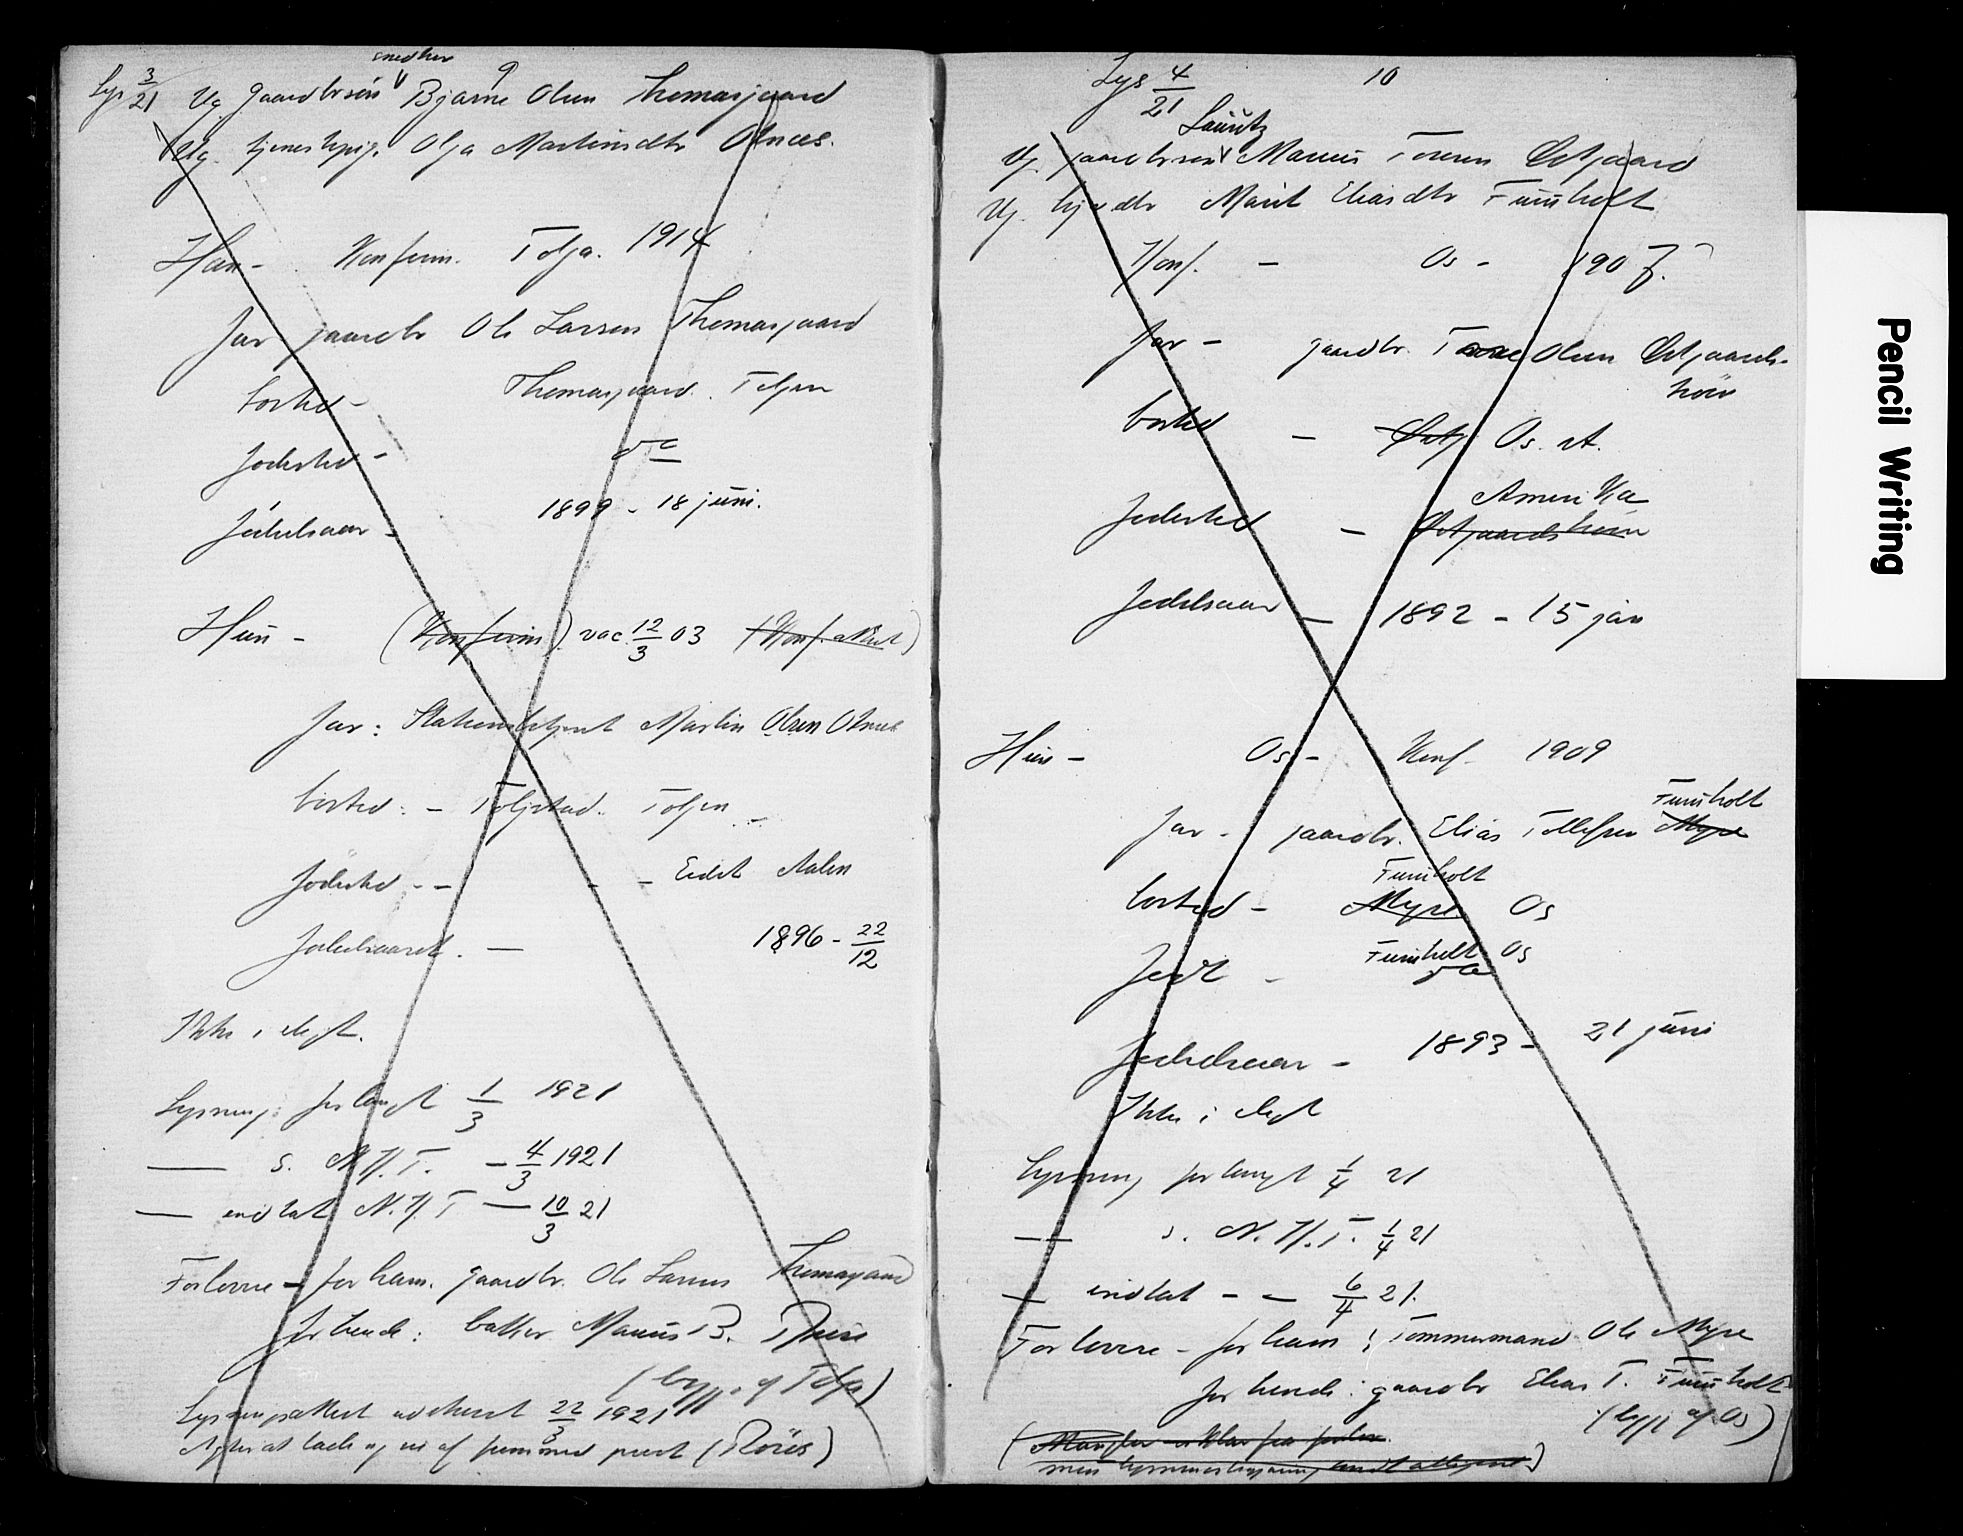 snedker
9
Lys 3/21 Ug. gaardbrsøn Bjarne Olsen Thomasgaard
Ug. tjenestepige Olga Martinsdtr Olnæs.
Han - Konfirm. Tolga. 1914
Far gaardbr Ole Larsen Thomasgaard
bosted - Thomasgaard. Tolgen
Fødested - do
Fødselsaar - 1899 - 18 juni.
Hun - (Konfirm) vac 12/3 03 (Konf. attest)
Far: Stationsbetjent Martin Olsen Olnæs
bosted: - Tolgstad. Tolgen
Fødested - - - - Eidet Aalen
Fødselsaaret. - 1896 - 22/12
Ikke i slegt.
Lysning forlangt 1/3 1921
— s. N.K.T. - 4/3 1921
— indtat N.K.T — 10/3 21
Forlovere - for ham. gaardbr. Ole Larsen Thomasgaard
for hende: baker Marius B.
(begge af Tolg)
Lysningsattest utstedt 22/3 1921
(Røros)
Lys 4/21
10
Lauritz
Ug. gaardbrsøn Marius Toresen Østgaard
Ug. gaardbrdtr Marit Eliasdtr Furuholt
Konf. - Os - 1907.
Far - gaardbr. Tore Olsen Østgaards-
høin
bosted - Østg Os. st.
Amerika
Fødested - Østgaardshøin
Fødselsaar - 1892 - 15 jan
Hun - Os - Konf - 1909
Furuholt
Far - gaardbr. Elias Tollefsen Myre
Furuholt
bosted - Myre Os
Furuholt Os
Født - do
Fødselsaar - 1893 - 21 juni
Ikke i slegt
Lysning forlangt 1/4 21
— s. N.K.T. 1/4 21
— indtat - - 6/4 21.
Forlovere - for ham: Tømmermand Ole Myre
for hende: gaardbr Elias T. Furuholt
(begge af Os)
Pencil Writing